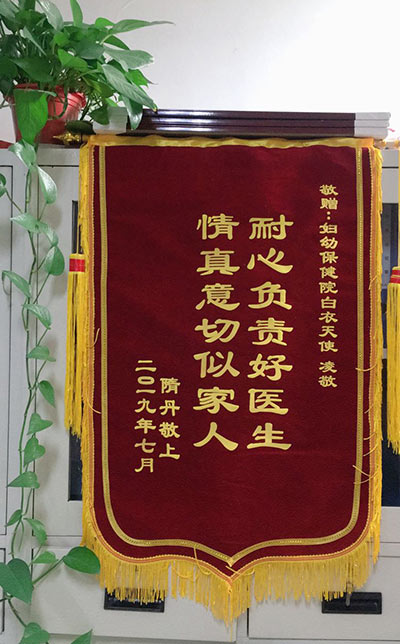 敬赠：妇幼保健院白衣天使 凌敬
耐心负责好医生
情真意切似家人
隋丹敬上
二〇一九年七月